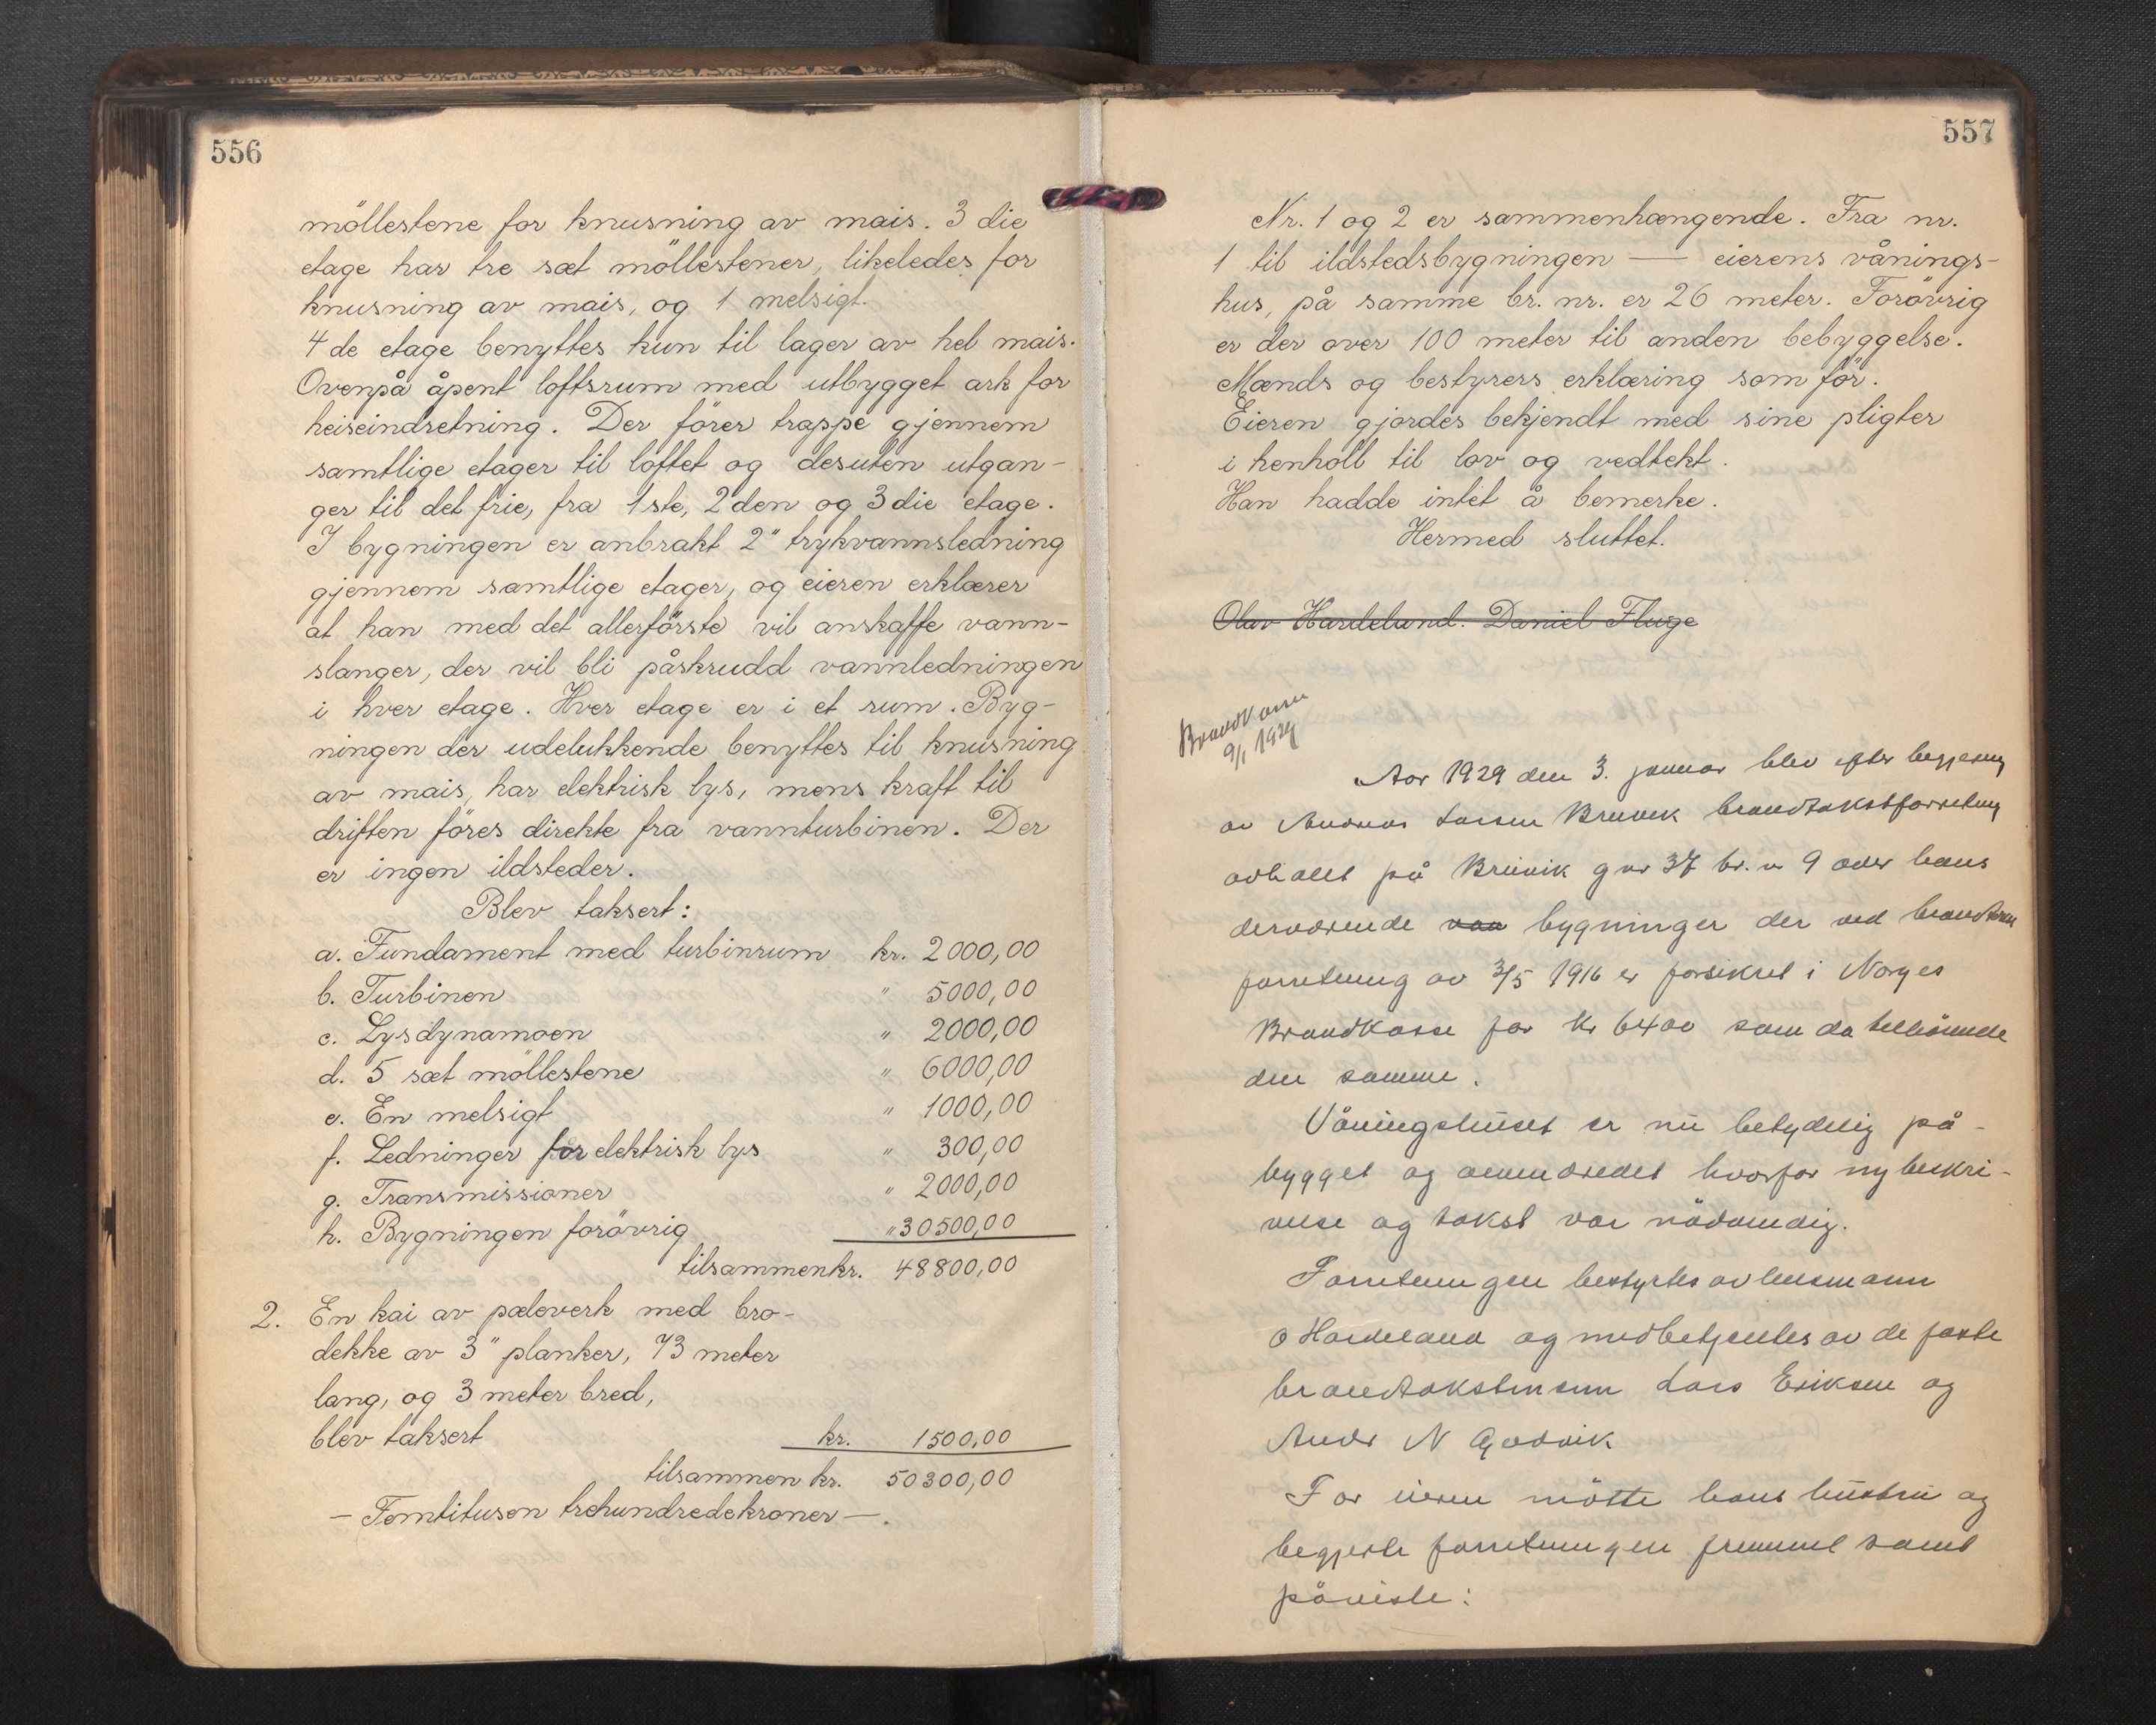 556
möllestene for knusning av mais. 3 die
etage har tre sæt möllestener, likeledes for
knusning av mais, og 1 melsigt.
4 de etage benyttes kun til lager av hel mais.
Ovenpå åpent loftsrum med utbygget ark for
heiseindretning. Der förer trappe gjennem
samtlige etager til loftet og desuten utgan-
ger til det frie, fra 1ste, 2den og 3die etage.
I bygningen er anbrakt 2" trykvannsledning
gjennem samtlige etager, og eieren erklærer
at han med det allerförste vil anskaffe vann-
slanger, der vil bli påskrudd vannledningen
i hver etage. Hver etage er i et rum. Byg-
ningen der udelukkende benyttes til knusning
av mais, har elektrisk lys, mens kraft til
driften föres direkte fra vannturbinen. Der
er ingen ildsteder.
Blev taksert:
a. Fundament med turbinrum kr. 2000,00
b. Turbinen " 5000,00
c. Lysdynamoen " 2000,00
d. 5 sæt möllestene " 6000,00
e. En melsigt " 1000,00
f. Ledninger for elektrisk lys " 300,00
g. Transmissioner " 2000,00
h. Bygningen forövrig " 30500,00
tilsammen kr. 48800,00
2. En kai av pæleverk med bro-
dekke av 3" planker, 73 meter
lang, og 3 meter bred,
blev taksert kr. 1500,00
tilsammen kr. 50300,00
- Femtitusen trehundredekroner -.
557
Nr. 1 og 2 er sammenhængende. Fra nr.
1 til ildstedsbygningen — eierens vånings-
hus, på samme br. nr. er 26 meter. Forövrig
er der over 100 meter til anden bebyggelse.
Mænds og bestyrers erklæring som för.
Eieren gjordes bekjendt med sine pligter
i henholl til lov og vedtekt.
Han hadde intet å bemerke.
Hermed sluttet.
Olav Hardeland. Daniel Fluge
Brandkassen
9/1 1929
Aar 1929 den 3. januar blev efter begjæring
av Andreas Larsen Bruvik brandtakstforretning
avholdt på Bruvik gnr 37 br. n 9 over hans
derværende van bygninger der ved brandtakst
forretning av 3/5 1916 er forsikret i Norges
Brandkasse for kr 6400 som da tilhörende
den samme.
Våningshuset er nu betydelig på-
bygget og omendredet hvorfor ny beskri-
velse og takst var nödvendig.
Forretningen bestyrtes av lensmann
O Hardeland og medbetjentes av de faste
brandtakstmenn Lars Eriksen og
Andr N Gjødvik
For eieren mötte hans hustru og
begjerte forretningen fremmet samt
påviste: